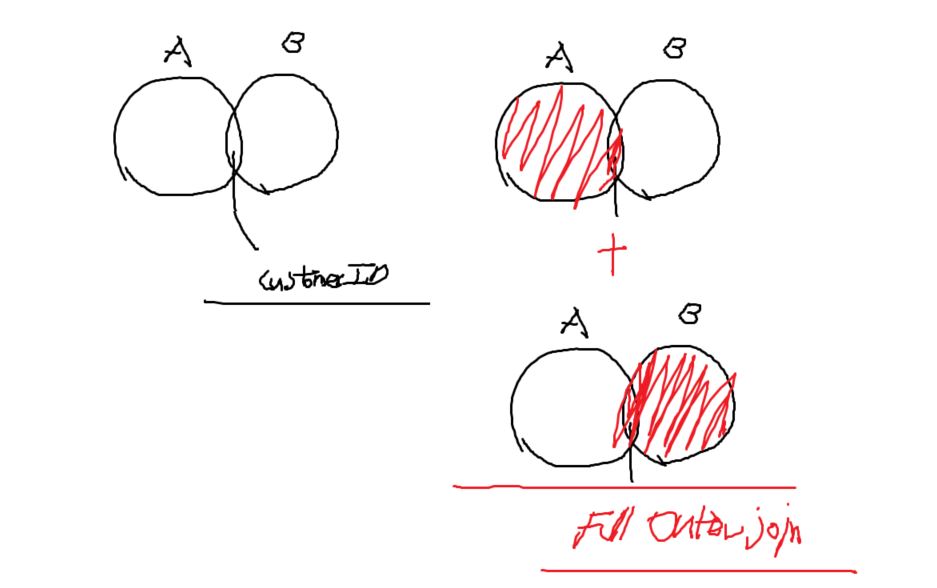 A B
CustomerID
A B
+
A B
Full Outer join